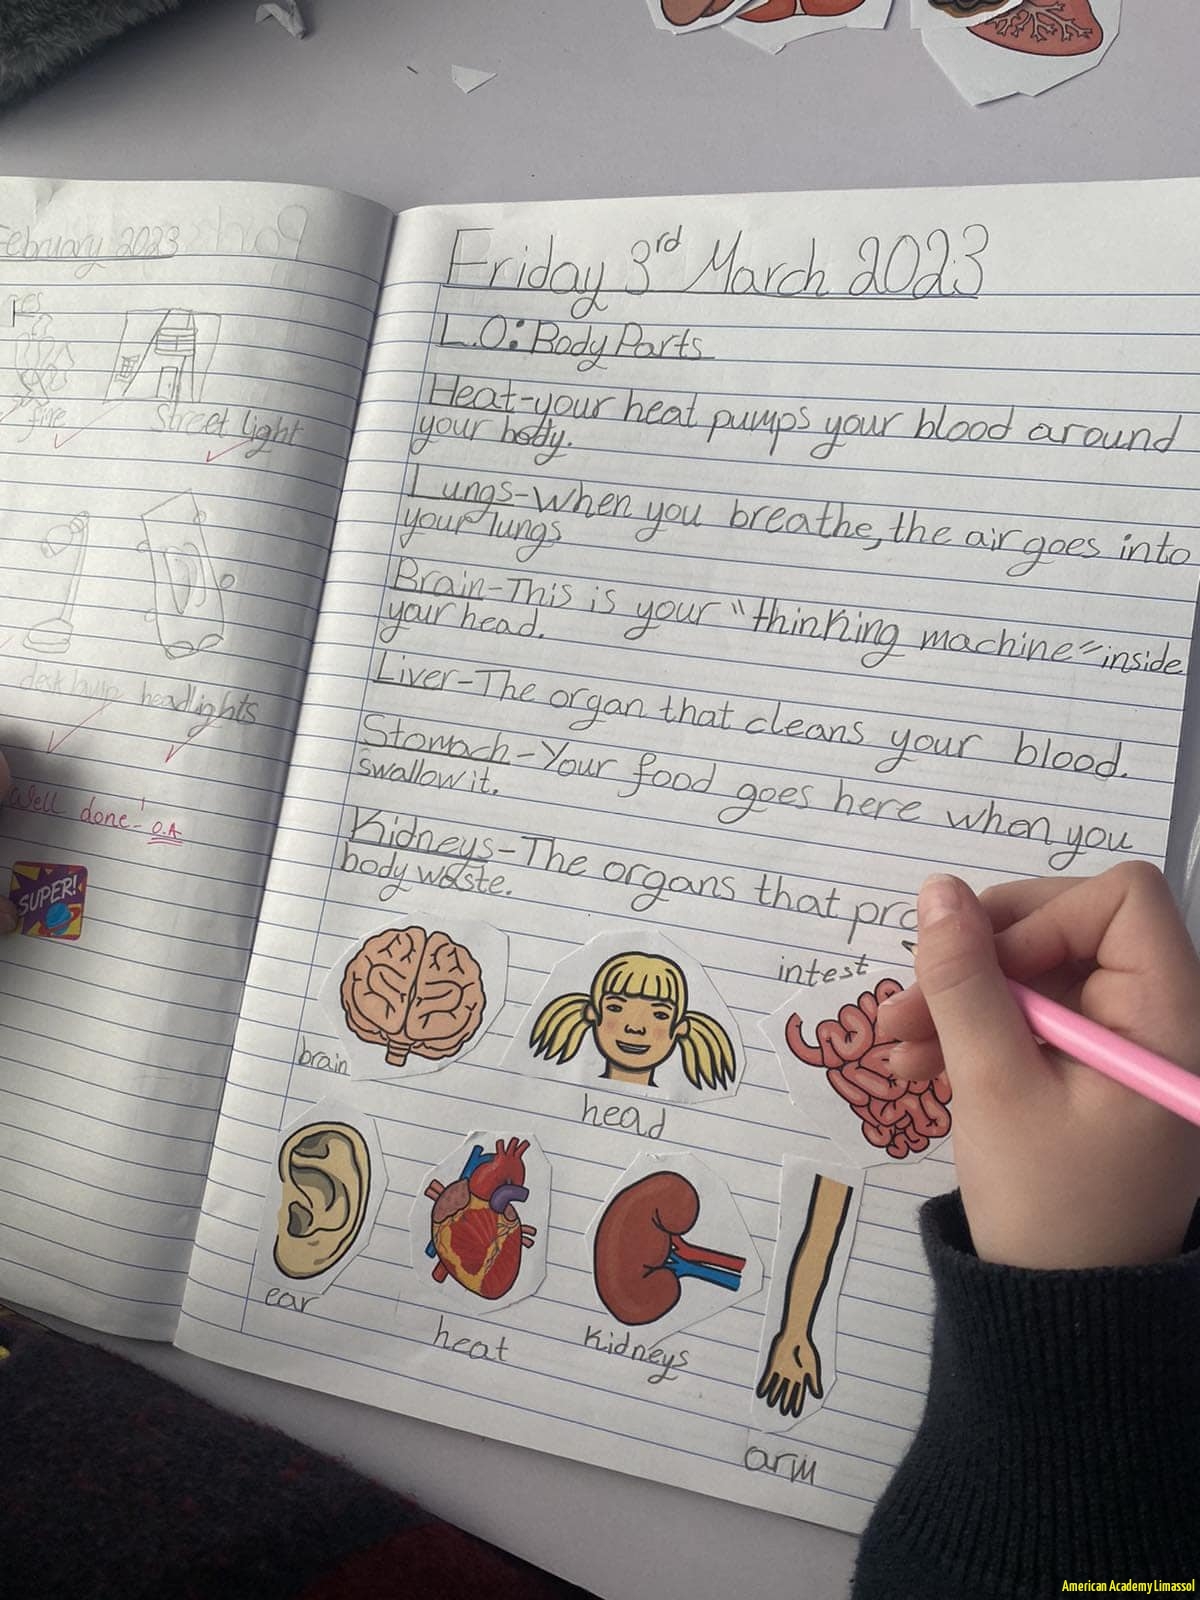 February 2023
fire
Street light
desk lamp headlights
Well done! O.A
SUPER!
Friday 3rd March 2023
L.O: Body Parts
Heat-your heat pumps your blood around
your body.
Lungs-When you breathe, the air goes into
your lungs
Brain-This is your "thinking machine" inside
your head.
Liver-The organ that cleans your blood.
Stomach-Your food goes here when you
swallow it.
Kidneys-The organs that pro
body waste.
brain
head
intest
ear
heat
Kidneys
arm
American Academy Limassol